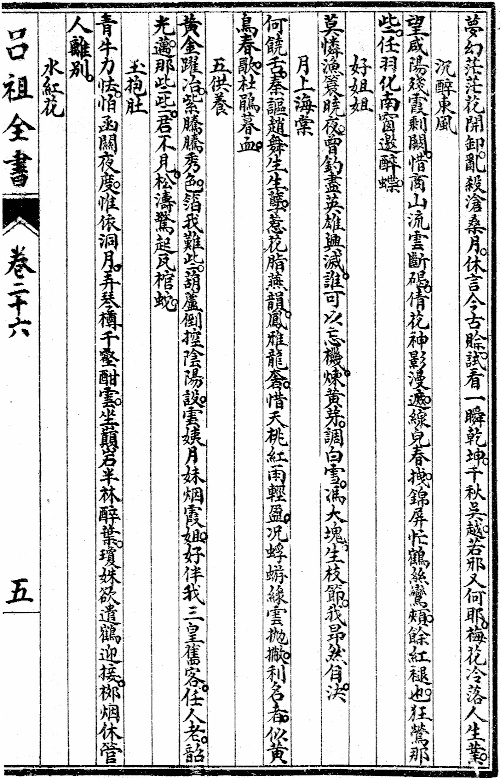 夢幻茫茫花開卸亂殺滄桑月休言今古賒試看一瞬乾坤千秋吳越若那又何耶梅花冷落人生葉
沉醉東風
望咸陽殘霞剩關惜商山流雲斷碣倩花神影漫遮線皃春拽錦屏忙鶴絲鸞頰餘紅褪也狂鶯那
些任羽化南窗邀醉蝶
好姐姐
莫憐漁簑曉夜曾釣盡英雄興滅誰可以忘機煉黃芽調白雪馮大塊生枝節我昂然自決
月上海棠
何饒舌秦謳趙舞生生孽惹花脂燕韻鳳雅龍奢惜夭桃紅雨輕盈况蜉蝣線雲拋撇利名者似黃
鳥春歌杜鵑暮血
五供養
黃金躍冶紫騰騰秀色箔我難些葫蘆倒控陰陽設雲姨月妹烟霞姐好伴我三皇舊客任人老韶
光邁那些些君不見松濤驚起瓦棺蛇
玉抱肚
青牛力怯怕函關夜度惟依洞月弄琴樽千壑酣雲坐巔岩半林醉葉瓊姝欲遣鶴迎接榔烟休管
人離別
水紅花
呂祖全書
卷二十六
五